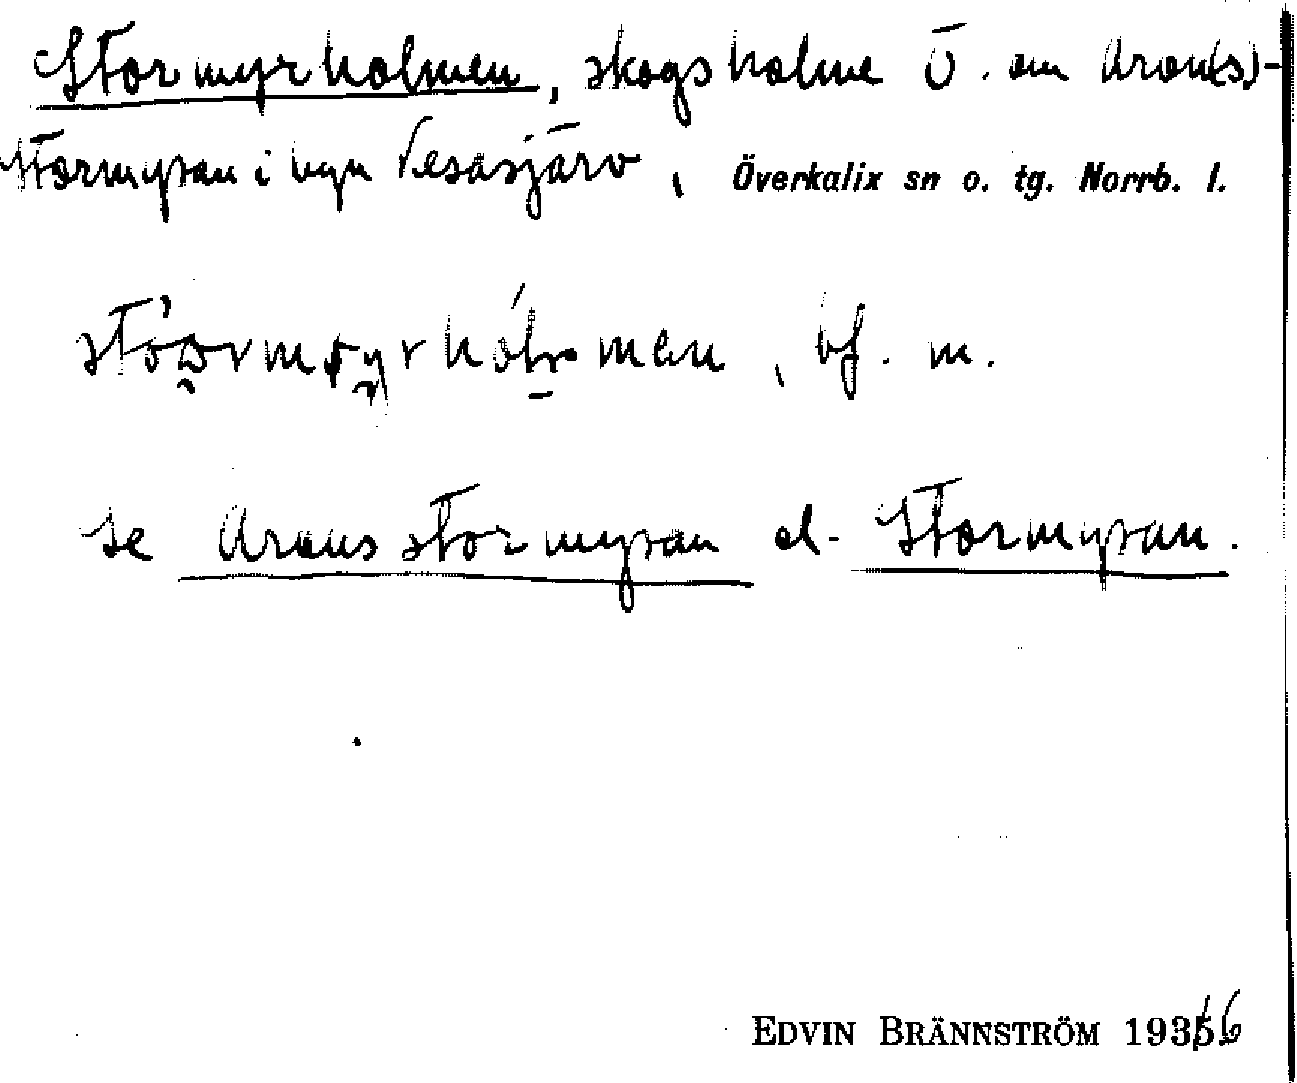 Stormyrholmen, skogsholme Ö. om Aron(s)-
stormyran i byn Vesasjärv, Överkalix sn o. tg. Norrb. l.
bf. m.
se Aronsstormyran el. Stormyran.
EDVIN BRÄNNSTRÖM 1936